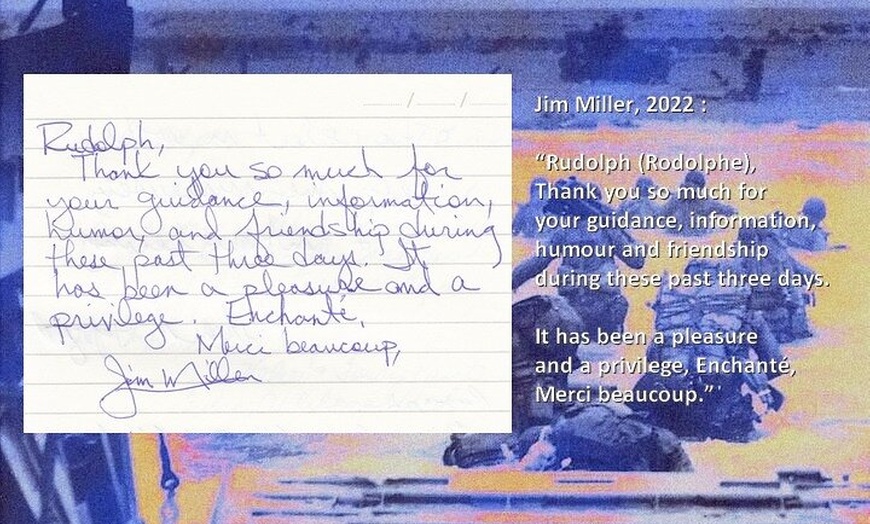 Rudolph,
Thank you so much for
your guidance, information,
humor, and friendship during
these past three days. It
has been a pleasure and a
privilege. Enchanté,
Merci beaucoup,
Jim Miller
Jim Miller, 2022 :
“Rudolph (Rodolphe),
Thank you so much for
your guidance, information,
humour and friendship
during these past three days.
It has been a pleasure
and a privilege, Enchanté,
Merci beaucoup.”